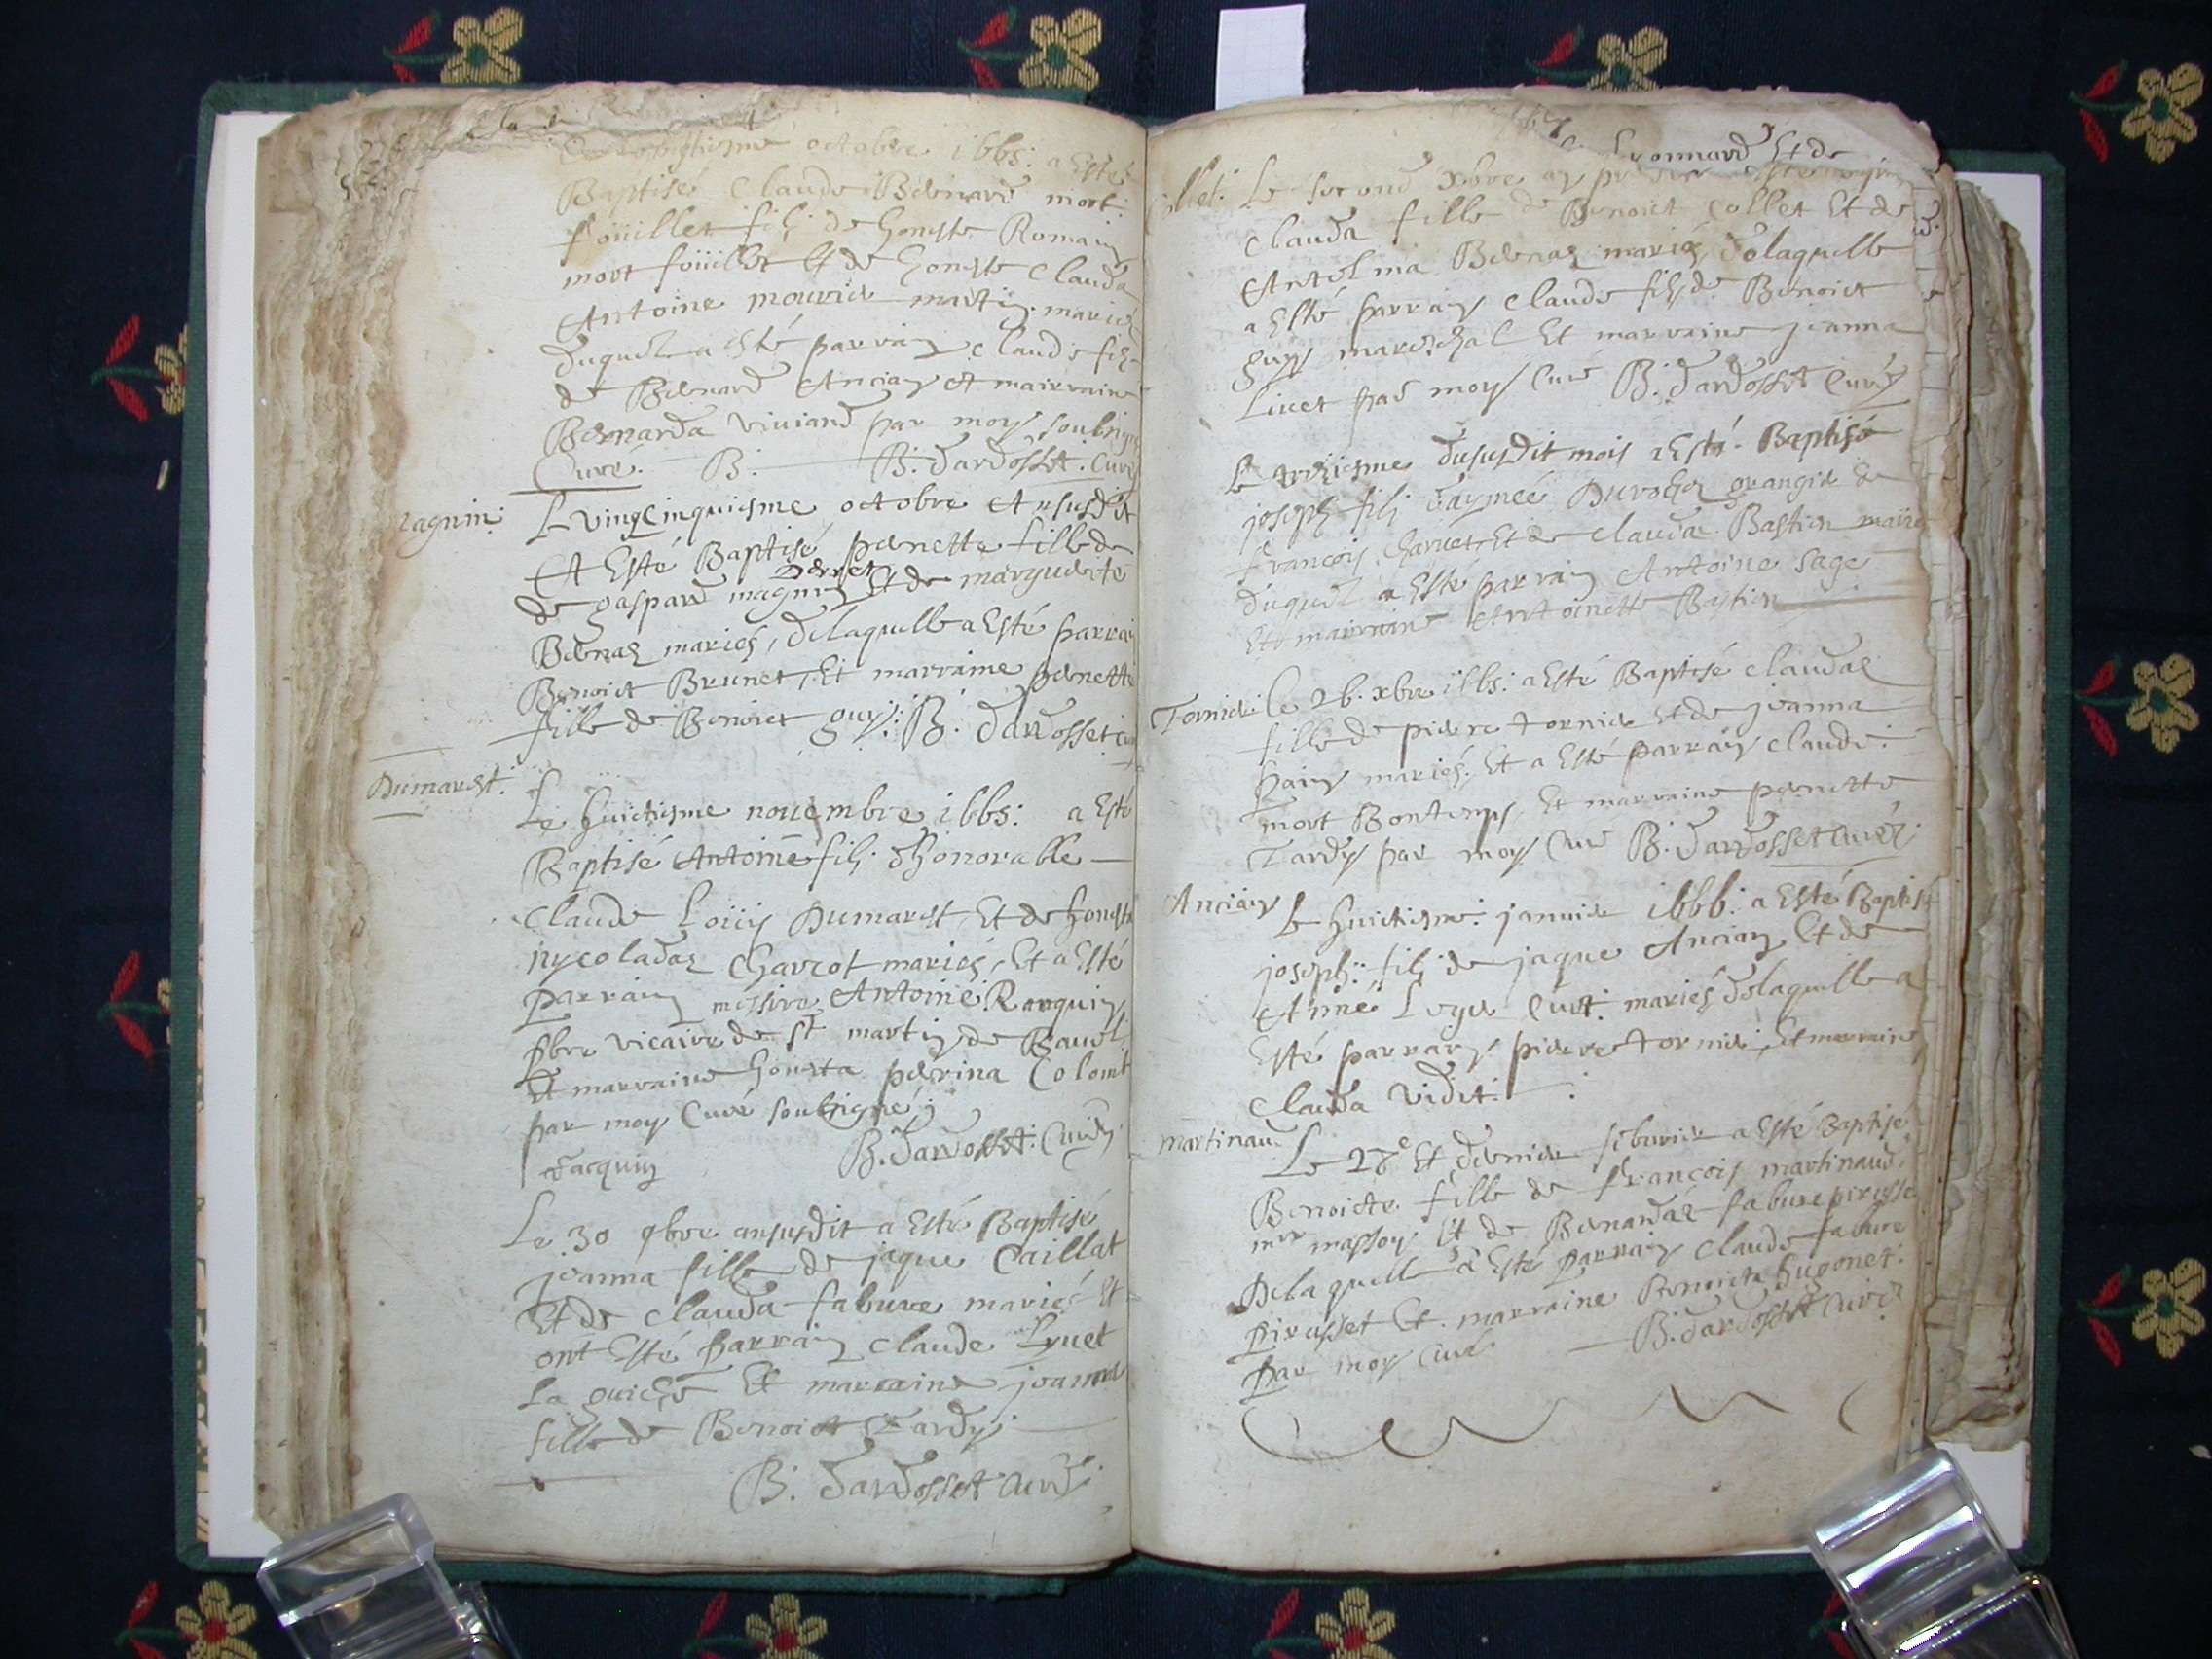 octobre 1665: a Esté
Baptisé Claude Bernard mort
foüillet fils de honeste Romain
mort foüillet & de honeste Clauda
Antoine mourier martin mariés
duquel a esté parrain Claude fils
de Bernard Ancian et mairraine
Bernarda Viviand par moy soubsigné
Curé. B: B. Dardosset. Curé
Magnin: Le vingcinquiesme octobre An susdit
A Esté Baptisé pernette fille de
Perret
de gaspard magnin Et de marguerite
Bernas mariés, de laquelle a Esté parrain
Benoict Brunet, Et marraine pernette
fille de Benoict guy: B. Dardosset
Dumarest:
Le huictiesme novembre 1665: a Esté
Baptisé Antoine fils d'honorable
Claude Loüis Dumarest Et de honeste
nycoladas Charcot mariés, Et a Esté
Parrain messire Antoine Ranquin
pbre vicaire de St martin de Bavel
Et marraine honesta perina Colomb
par moy Curé soubsigné;
B. Dardosset: Curé
Jacquin
Le 30 9bre an susdit a Esté Baptisé
jeanna fille de jaque Caillat
Et de Clauda fabvre mariés Et
ont Esté parrain Claude Lyvet
la guiche Et marraine jeanna
fille de Benoict Tardy;
B. Dardosset Curé
Lyonnard Et de
Collet: Le second xbre
Clauda fille de Benoict Collet Et de
Antelma Bernas mariés, de laquelle
a Esté parrain Claude fils de Benoict
guy mareschal Et marraine jeanna
Livet par moy Curé B. Dardosset Curé
Le treisiesme du susdit mois a Esté Baptisé
joseph fils d'aymeé Durochez grangier de
François Charvet, Et de Clauda Bastien mariés
duquel a Esté parrain Antoine sage
Et mairraine Antoinette Bastien
Tornier: Le 26. xbre 1665: a Esté Baptisé Claudas
fille de pierre tornier Et de jeanna
pain mariés. Et a Esté parrain Claude
mort Bontemps, Et marraine pernette
Tardy par moy Curé B. Dardosset Curé
Ancian Le huictiesme: janvier 1666: a Esté Baptisé
joseph: fils de jaque Ancian Et de
Anne Leger Curt: mariés de laquelle a
Esté parrain pierre tornier, Et marraine
Clauda vidit:
Martinaud
Le 28e Et dernier febvrier a Esté Baptisé
Benoicte fille de François martinaud,
mre masson Et de Bernardas fabvre pirasset
De laquelle a Esté Parrain Claude fabvre
pirasset Et marraine Benoicte hugonet
Par moy Curé B. Dardosset Curé